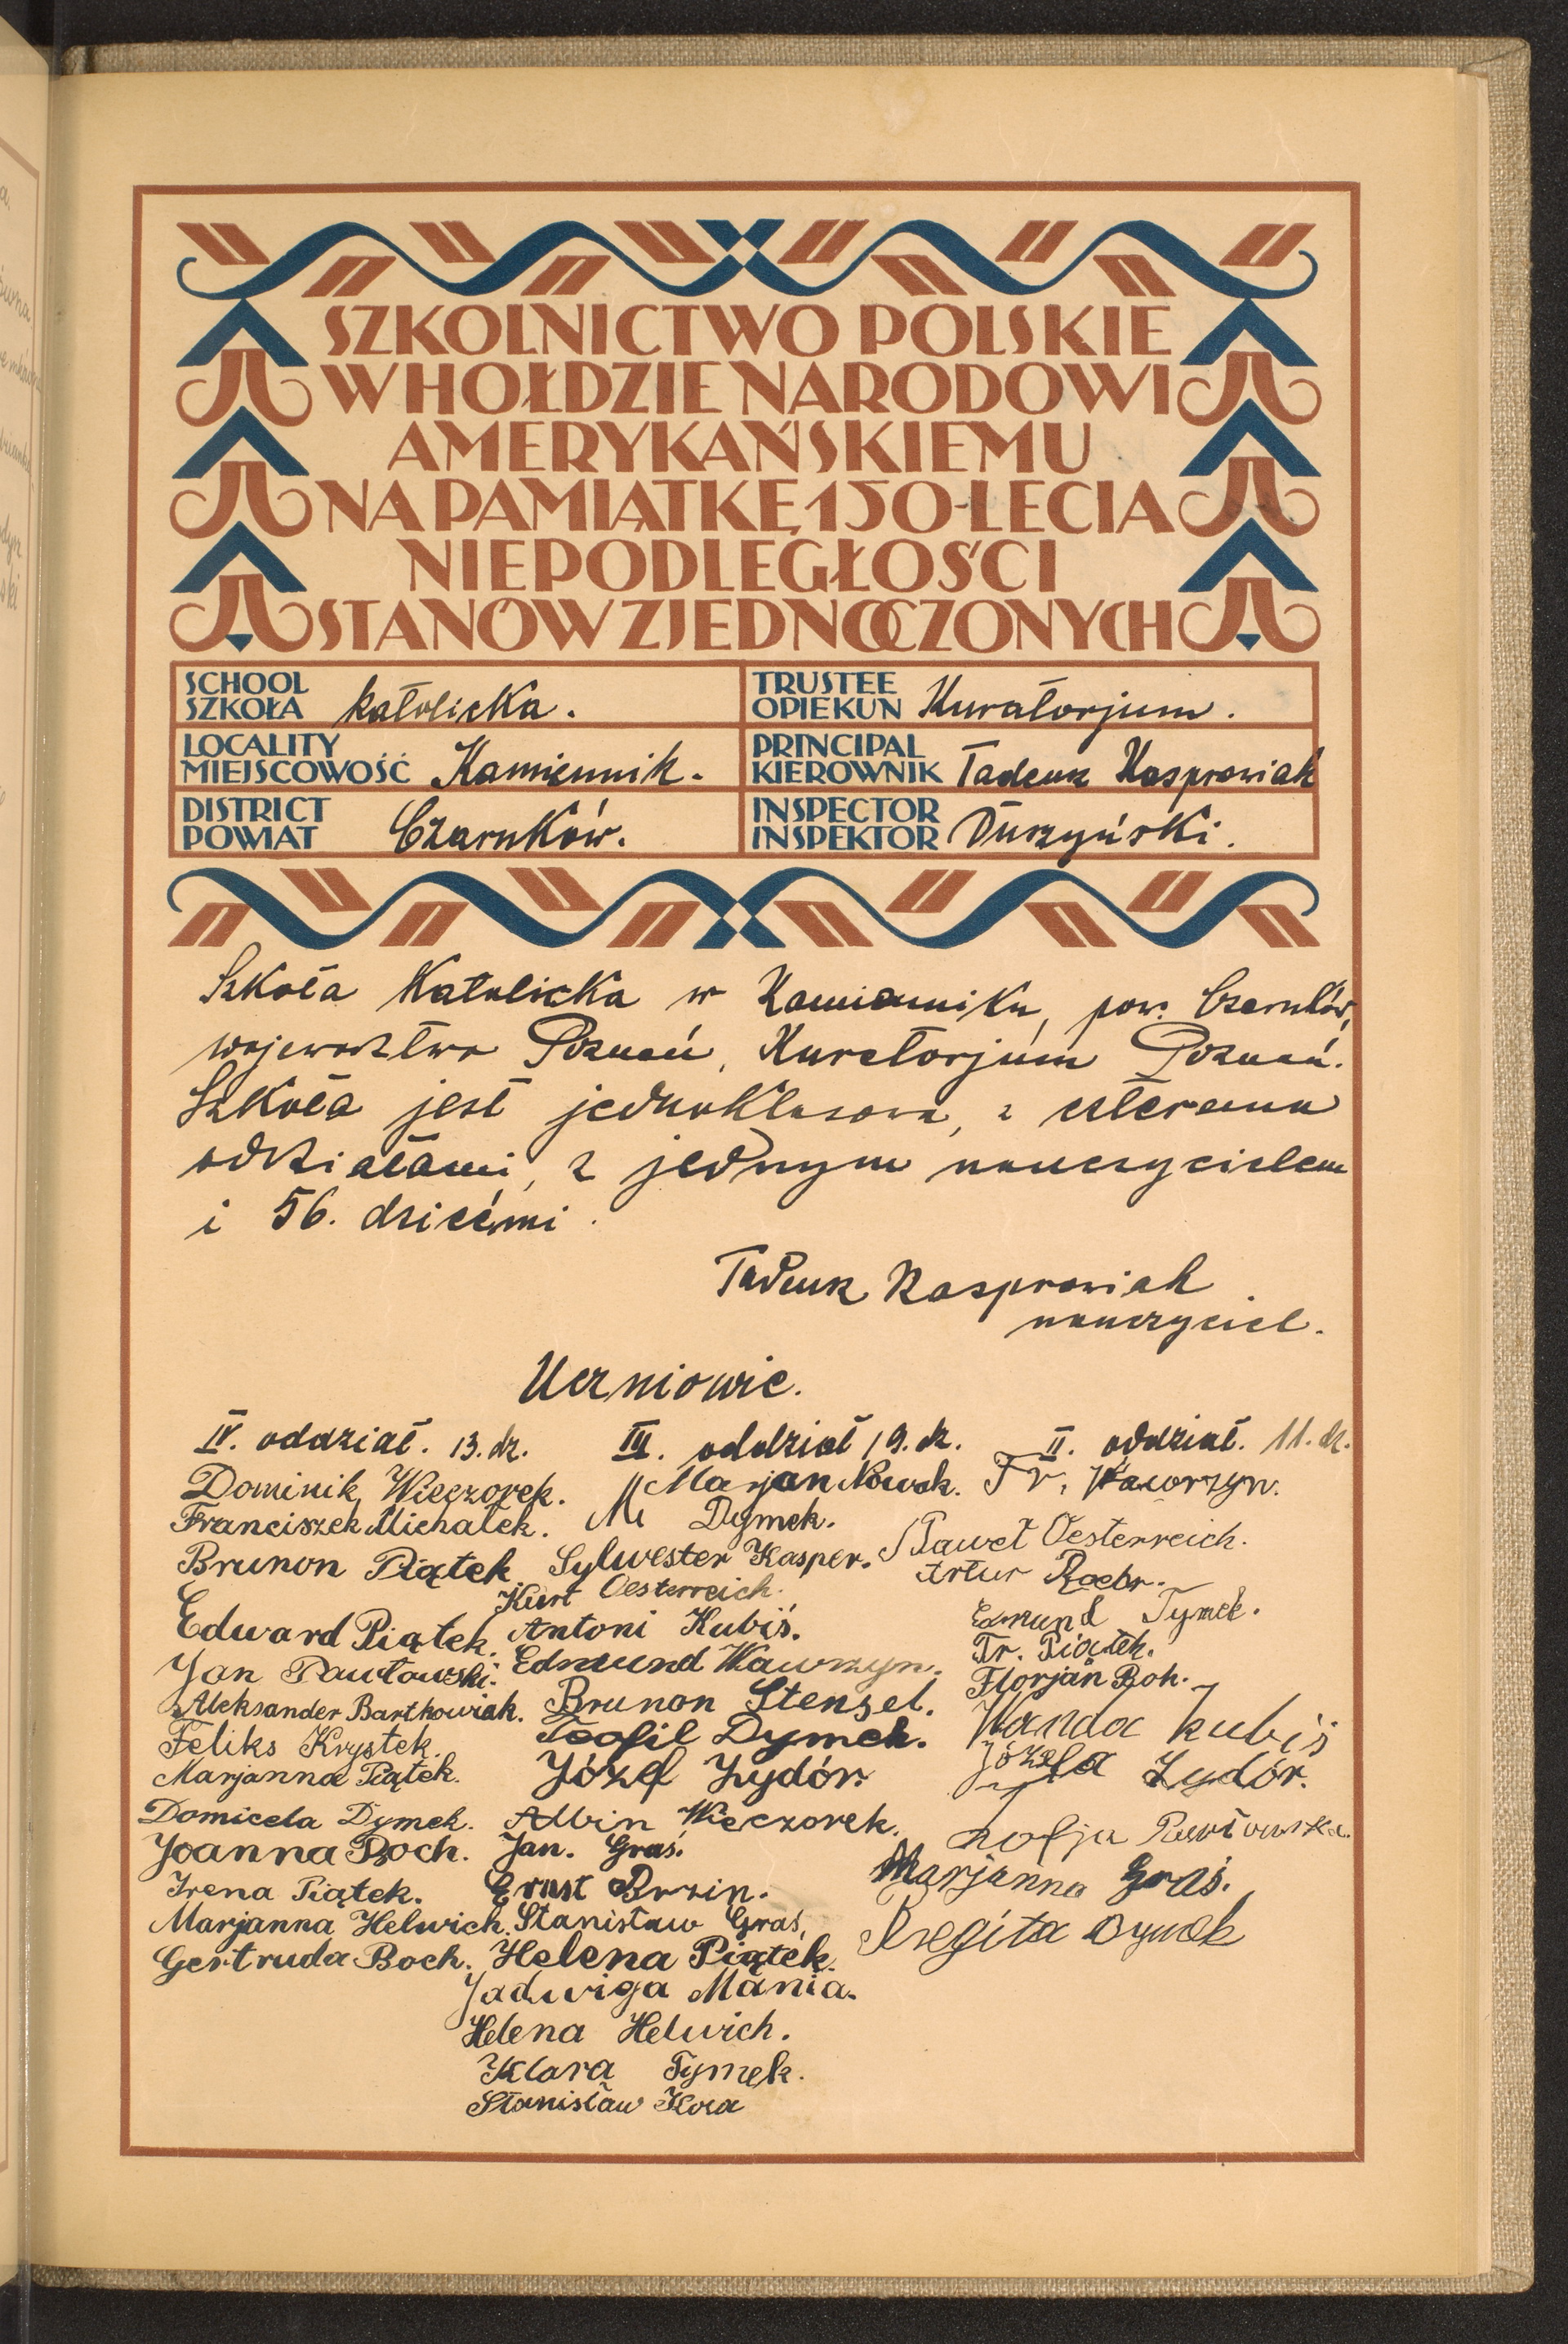 SZKOLNICTWO POLSKIE
W HOŁDZIE NARODOWI
AMERYKAŃSKIEMU
NA PAMIĄTKĘ 150-LECIA
NIEPODLEGŁOŚCI
STANÓW ZJEDNOCZONYCH
SCHOOL
SZKOŁA katolicka.
TRUSTEE
OPIEKUN Kuratorjum.
LOCALITY
MIEJSCOWOŚĆ Kamiennik.
PRINCIPAL
KIEROWNIK Tadeusz Kasprowiak
DISTRICT
POWIAT Czarnków.
INSPECTOR
INSPEKTOR Duszyński.
Szkoła Katolicka w Kamienniku, pow. Czarnków,
województwo Poznań, Kuratorjum Poznań.
Szkoła jest jednoklasowa, z czterema
odziałami, z jednym nauczycielem
i 56. dziećmi.
Tadeusz Kasprowiak
nauczyciel.
Uczniowie.
IV. oddział. 13. dz.
Dominik Wieczorek.
Franciszek Michałek.
Brunon Piątek.
Edward Piątek.
Jan Pawłowski.
Aleksander Bartkowiak.
Feliks Krystek.
Marjanna Piątek.
Domicela Dymek.
Joanna Boch.
Irena Piątek.
Marjanna Helwich.
Gertruda Boch.
III. oddział 19. dz.
Marjan Nowak.
M Dymek.
Sylwester Kasper.
Kurt Oesterreich.
Antoni Kubiś.
Edmund Wawrzyn.
Brunon Stenzel.
Teofil Dymek.
Józef Zydór.
Albin Wieczorek.
Jan. Graś.
Ernst Brzin.
Stanisław Graś,
Helena Piątek.
Jadwiga Mania.
Helena Helwich.
Klara Tymek.
Stanisław
II. oddział. 11. dz.
Fr. Wawrzyn.
Paweł Oesterreich.
Artur
Edmund Tymek.
Fr. Piątek.
Florjan Boh.
Wanda Kubiś
Józefa Zydór.
Zofja Pawłowska.
Marjanna Graś.
Dymek